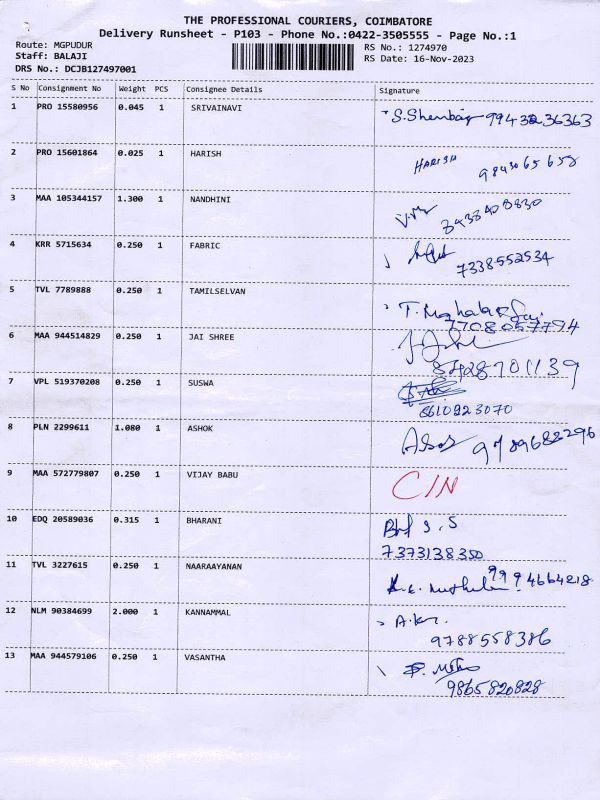 THE PROFESSIONAL COURIERS, COIMBATORE
Delivery Runsheet - P103 - Phone No.:0422-3505555 - Page No.:1
Route: MGPUDUR RS No.: 1274970
Staff: BALAJI RS Date: 16-Nov-2023
DRS No.: DCJB127497001
S No Consignment No Weight PCS Consignee Details Signature
1 PRO 15580956 0.045 1 SRIVAINAVI 9943236363
2 PRO 15601864 0.025 1 HARISH HARISH
9843065658
3 MAA 105344157 1.300 1 NANDHINI
4 KRR 5715634 0.250 1 FABRIC
7338552534
5 TVL 7789888 0.250 1 TAMILSELVAN
7708057794
6 MAA 944514829 0.250 1 JAI SHREE
8428701139
7 VPL 519370208 0.250 1 SUSWA
8610923070
8 PLN 2299611 1.080 1 ASHOK 9789683296
9 MAA 572779807 0.250 1 VIJAY BABU C/N
10 EDQ 20589036 0.315 1 BHARANI
7373138350
11 TVL 3227615 0.250 1 NAARAAYANAN 9994664218
12 NLM 90384699 2.000 1 KANNAMMAL
9788558386
13 MAA 944579106 0.250 1 VASANTHA
9865820828